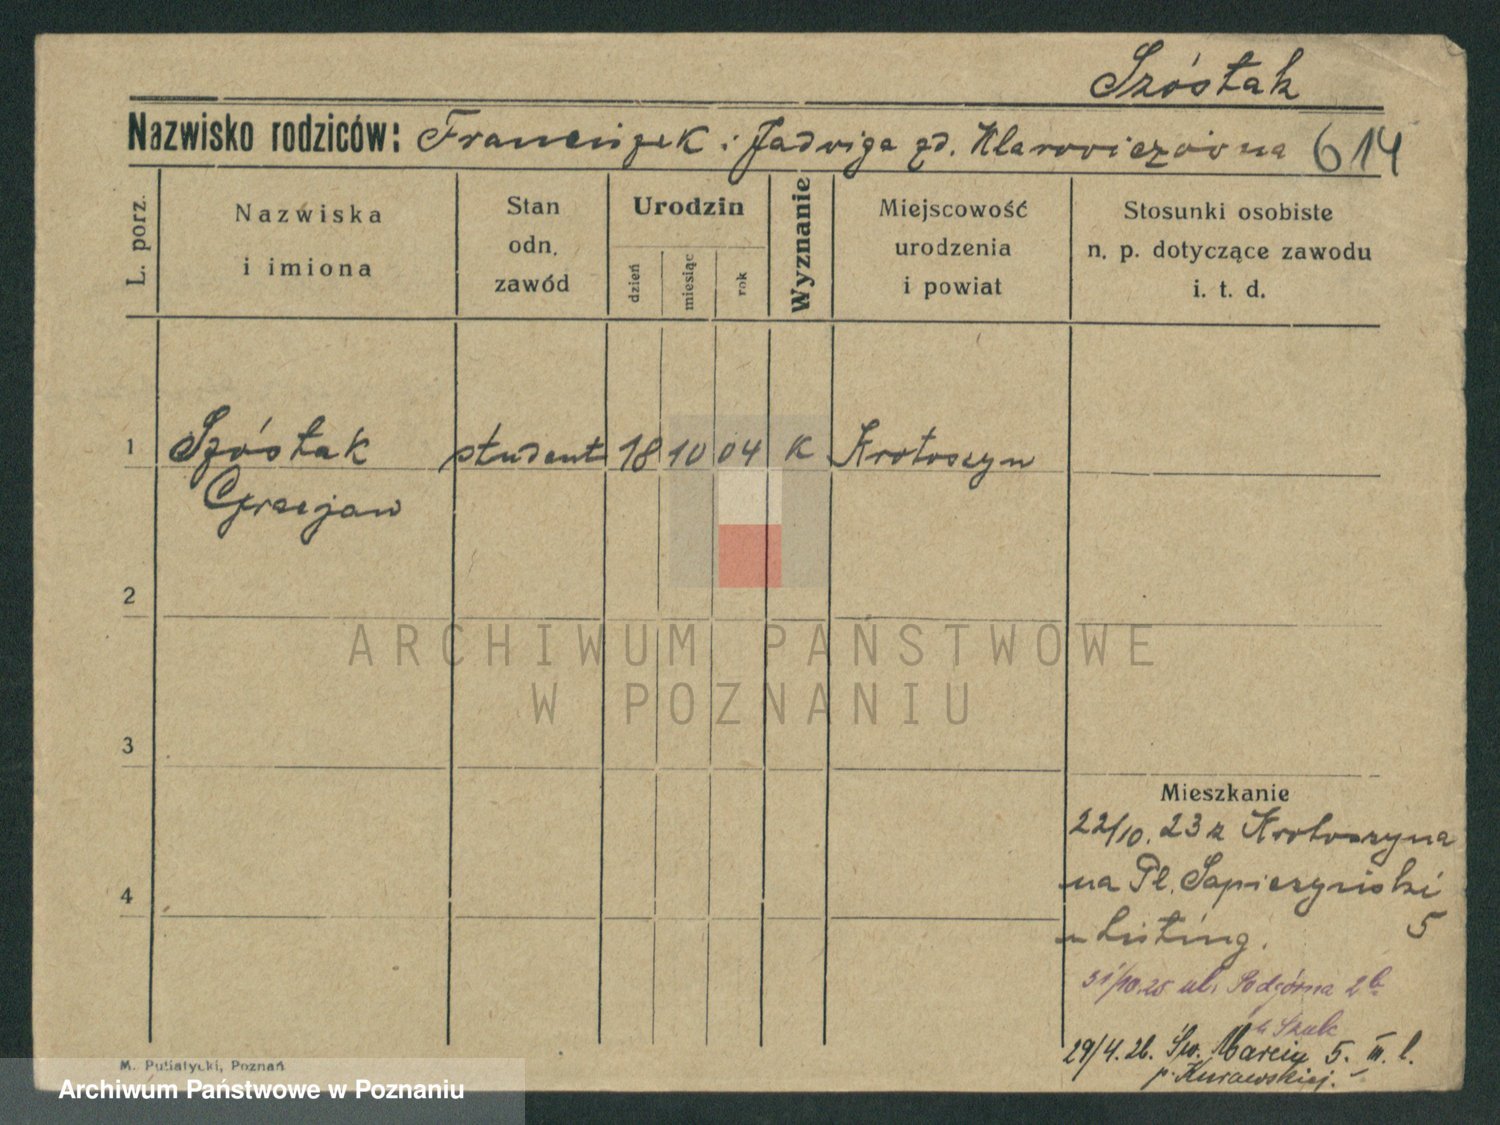 Szóstak
Nazwisko rodziców: Franciszek i Jadwiga zd. Klarowiczówna 614
L. porz.
Nazwiska
i imiona
Stan
odn.
zawód
Urodzin
dzień
miesiąc
rok
Wyznanie
Miejscowość
urodzenia
i powiat
Stosunki osobiste
n. p. dotyczące zawodu
i. t. d.
1 Szóstak student 18 10 04 K Krotoszyn
2
3
4
ARCHIWUM PAŃSTWOWE
W POZNANIU
Mieszkanie
22/10. 23 z Krotoszyna
na Pl. Sapieżyński
5
u
31/10.25 ul. Podgórna 2b
u Szulc
29/4. 26. Św. Marcin 5. III. l.
p. Kurawskiej.
M. Putiatycki, Poznań
Archiwum Państwowe w Poznaniu